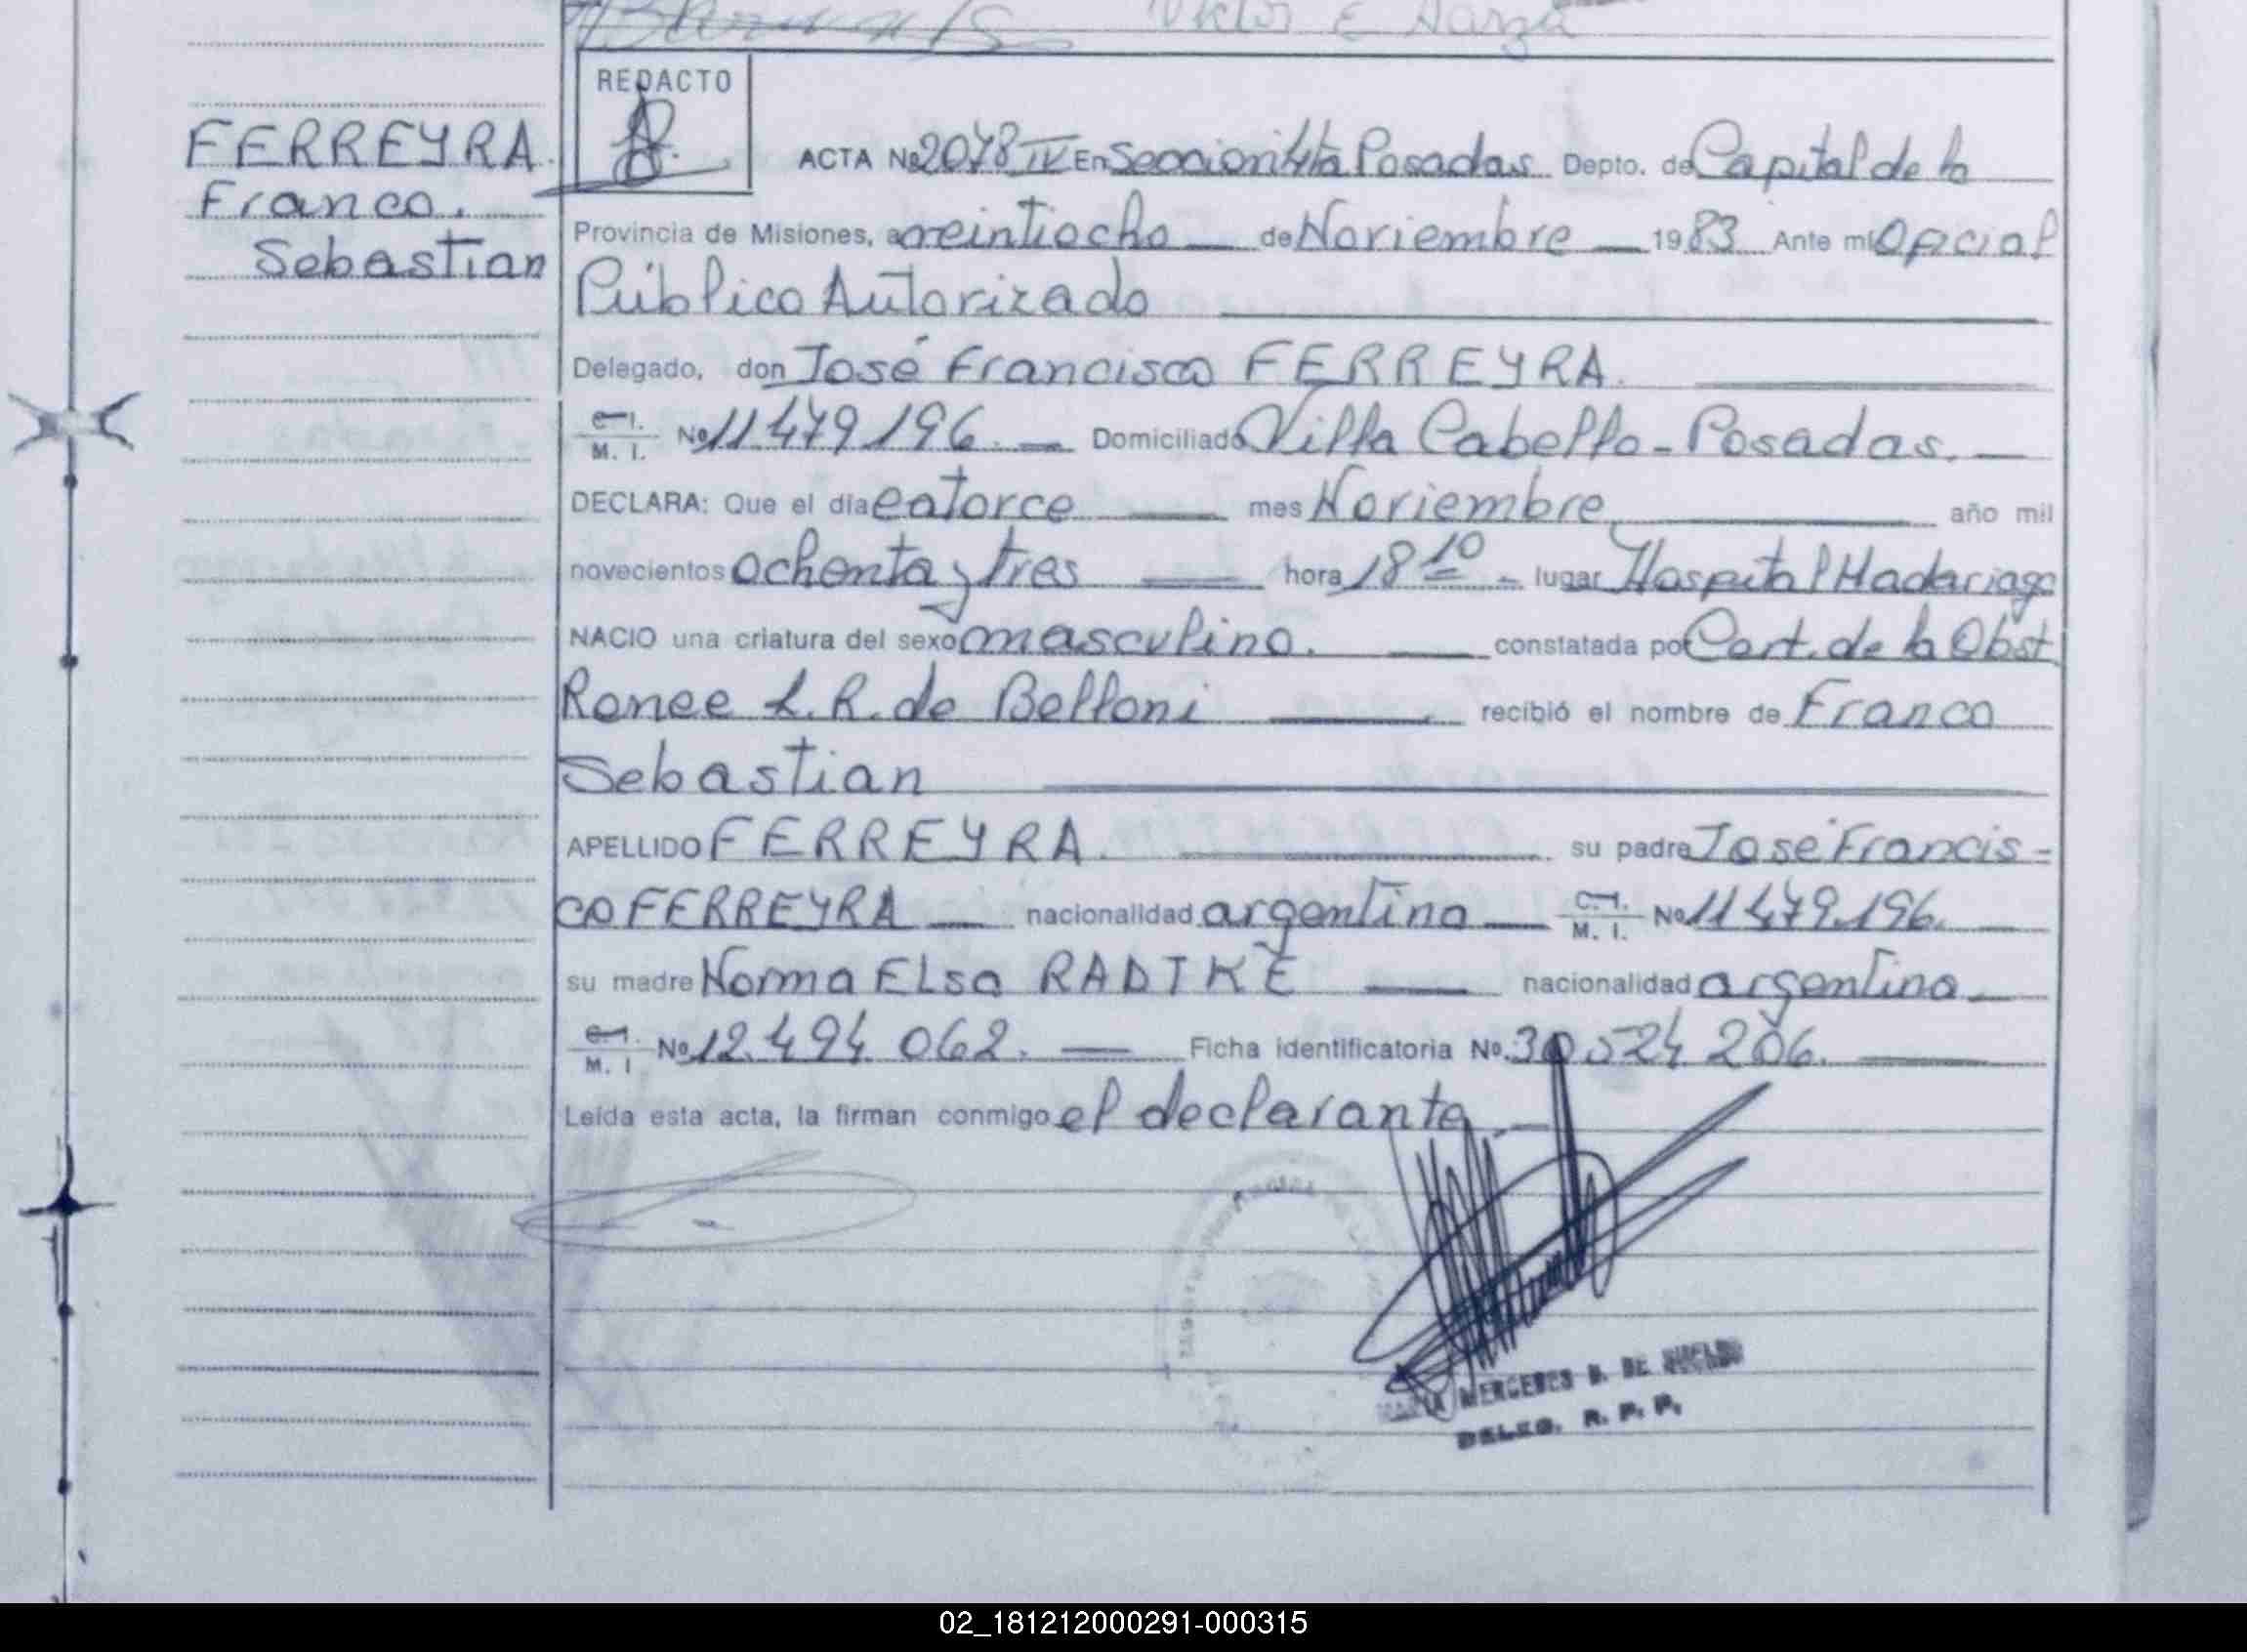 Victor E
REDACTO
FERREYRA.
Franco.
Sebastian
ACTA Nº 2078 IV En Seccion 4ta Posadas Depto. de Capital de la
Provincia de Misiones, a veintiocho de Noviembre 1983 Ante mí Oficial
Público Autorizado
Delegado, don José Francisco FERREYRA.
C. I. M. I. Nº 11.479.196. Domiciliado Villa Cabello - Posadas.
DECLARA: Que el día catorce mes Noviembre año mil
novecientos ochenta y tres hora 18 10 lugar Hospital Madariaga
NACIO una criatura del sexo masculino. constatada por Cert. de la Obst
Renee L. R. de Belloni recibió el nombre de Franco
Sebastian
APELLIDO FERREYRA. su padre José Francis-
co FERREYRA nacionalidad argentina C. I. M. I. Nº 11.479.196.
su madre Norma Elsa RADTKE nacionalidad argentina
C. I. M. I Nº 12.494.062. Ficha identificatoria Nº. 30.524.206.
Leída esta acta, la firman conmigo el declarante
MERCEDES B. DE
DELEG. R. P. P.
02_181212000291-000315